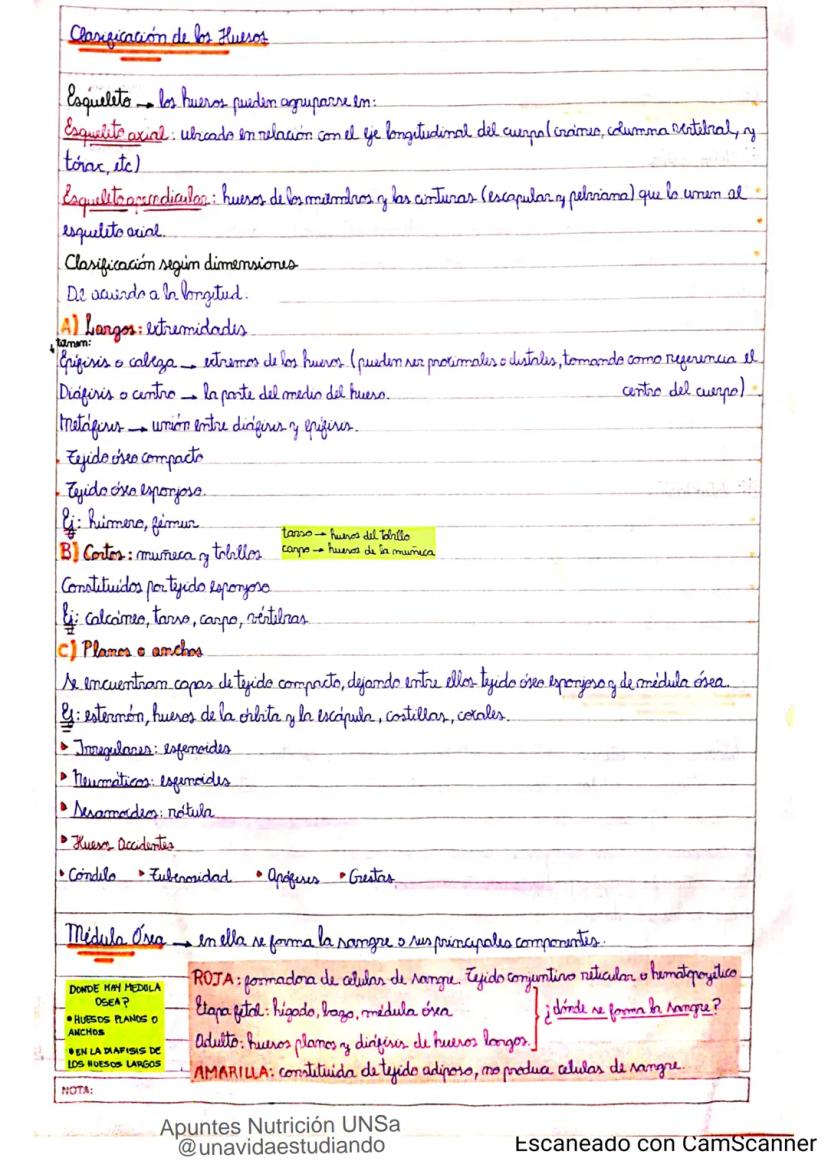 Clasificación de los Huesos
Esqueleto → los huesos pueden agruparse en:
Esqueleto axial: ubicado en relación con el eje longitudinal del cuerpo (cráneo, columna vertebral, y
tórax, etc)
Esqueleto apendicular: huesos de los miembros y las cinturas (escapular y pelviana) que lo unen al
esqueleto axial.
Clasificación según dimensiones
De acuerdo a la longitud.
A) Largos: extremidades
tienen:
Epífisis o cabeza → extremos de los huesos (pueden ser proximales o distales, tomando como referencia el
centro del cuerpo)
Diáfisis o centro → la parte del medio del hueso.
Metáfisis → unión entre diáfisis y epífisis.
Tejido óseo compacto
Tejido óseo esponjoso.
Ej: húmero, fémur
tarso → huesos del tobillo
carpo → huesos de la muñeca
B) Cortos: muñeca y tobillos
Constituidos por tejido esponjoso
Ej: calcáneo, tarso, carpo, vértebras
C) Planos o anchos
Se encuentran capas de tejido compacto, dejando entre ellos tejido óseo esponjoso y de médula ósea.
Ej: esternón, huesos de la órbita y la escápula, costillas, coxales.
▸ Irregulares: esfenoides
▸ Neumáticos: esfenoides
• Sesamoideos: rótula
▸ Huesos Accidentes
• Cóndilo ▸ Tuberosidad • Apófisis • Crestas
Médula Ósea → en ella se forma la sangre o sus principales componentes.
DONDE HAY MEDULA
OSEA?
• HUESOS PLANOS O
ANCHOS
• EN LA DIAFISIS DE
LOS HUESOS LARGOS
ROJA: formadora de celulas de sangre. Tejido conjuntivo reticular o hematopoyético
Etapa fetal: hígado, bazo, médula ósea
Adulto: huesos planos y diáfisis de huesos largos.
¿dónde se forma la sangre?
AMARILLA: constituida de tejido adiposo, no produce celulas de sangre.
NOTA:
Apuntes Nutrición UNSa
@unavidaestudiando
Escaneado con CamScanner